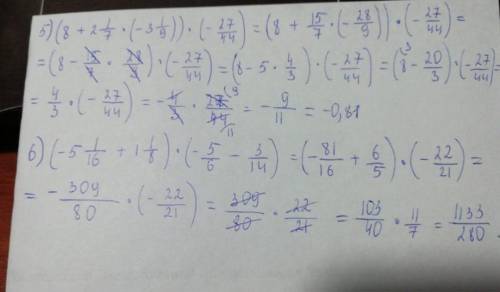 5) (8 + 2 1/7 · (-3 1/9)) · (-27/44) = (8 + 15/7 · (-28/9)) · (-27/44) =
= (8 - 15/7 · 28/9) · (-27/44) = (8 - 5 · 4/3) · (-27/44) = (8 - 20/3) · (-27/44) =
= 4/3 · (-27/44) = - 4/3 · 27/44 = - 9/11 = -0,81
6) (-5 1/16 + 1 1/8) · (-5/6 - 3/14) = (-81/16 + 6/5) · (-22/21) =
= - 309/80 · (-22/21) = 309/80 · 22/21 = 103/40 · 11/7 = 1133/280